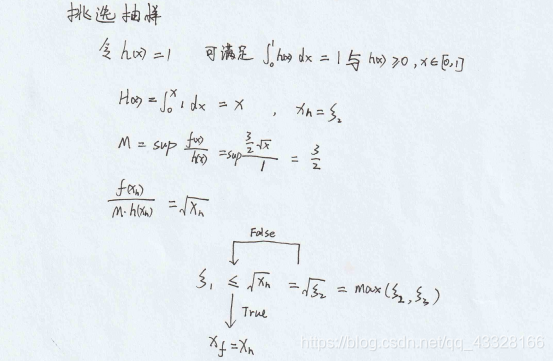 挑选抽样
令 h(x)=1 可满足 ∫₀¹h(x) dx = 1 与 h(x) ≥ 0, x∈[0,1]
H(x) = ∫₀ˣ 1 dx = x , xₕ = ξ₂
M = sup f(x)/h(x) = sup (3/2 √x)/1 = 3/2
f(xₕ)/(M·h(xₕ)) = √xₕ
False
ξ₁ ≤ √xₕ = √ξ₂ = max(ξ₂, ξ₃)
True
x_f = xₕ
https://blog.csdn.net/qq_43328166